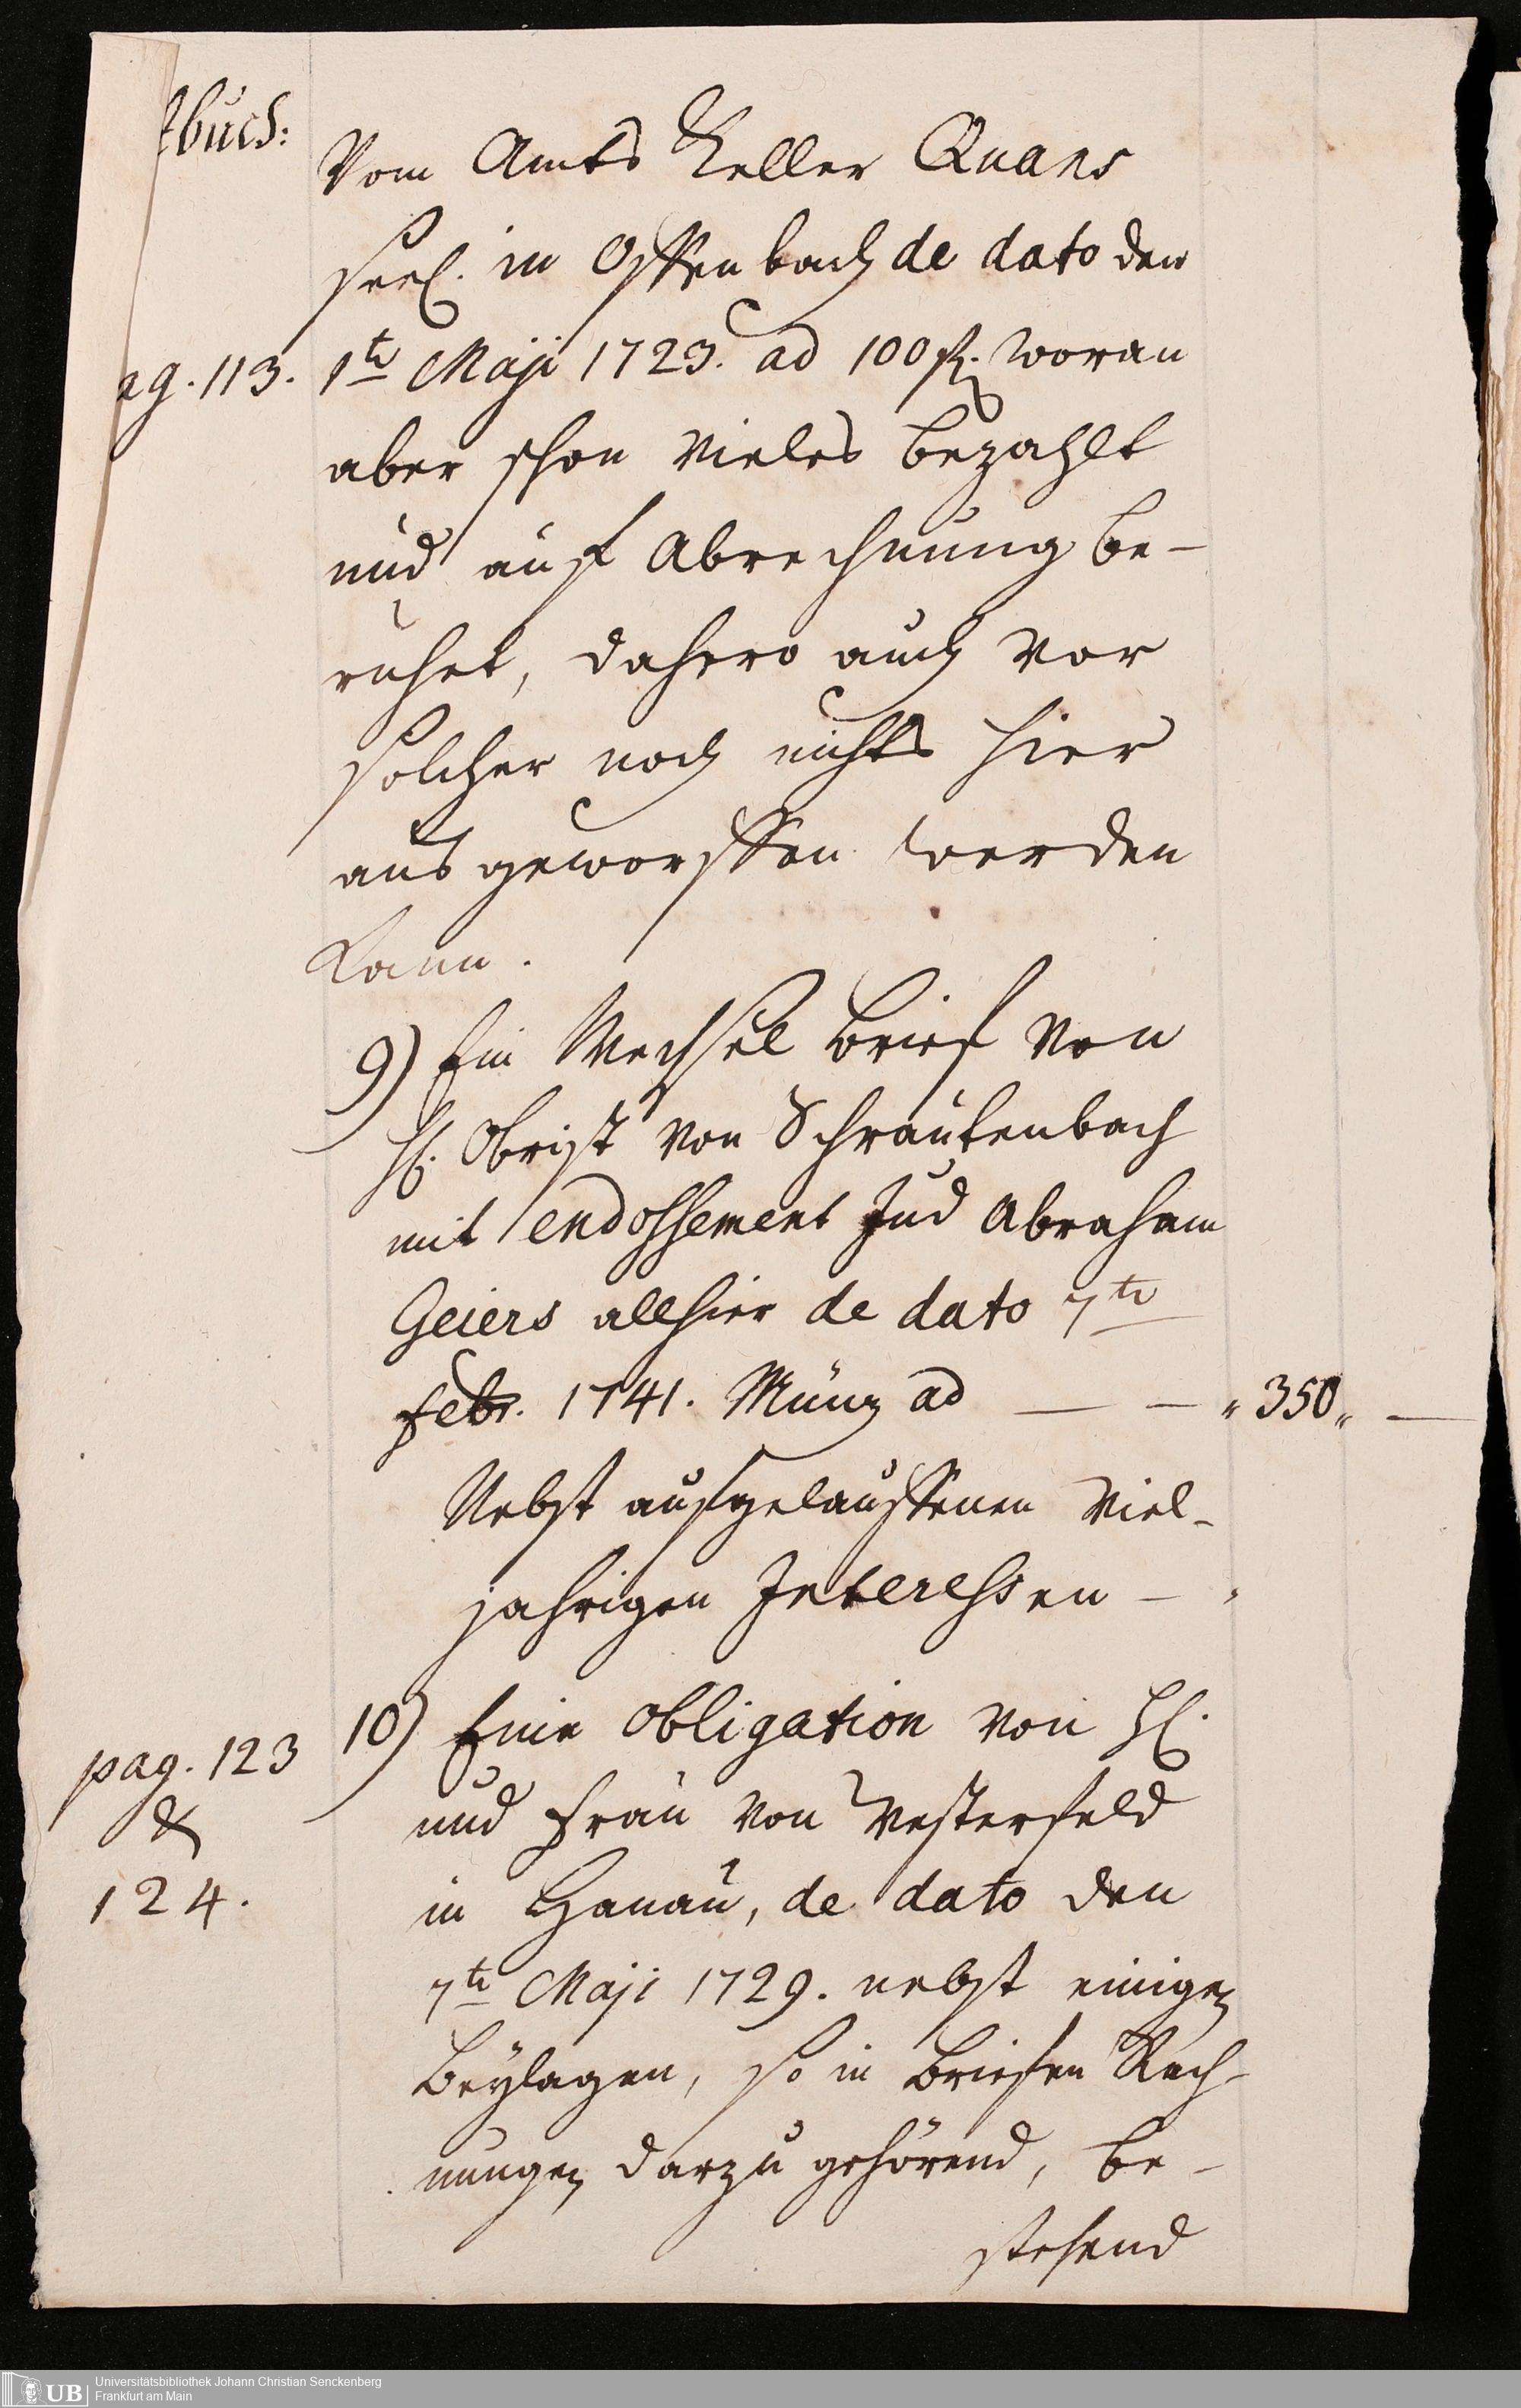 buch:
Vom Amts Keller Quans
seel. in Offenbach de dato den
ag. 113. 1te Maji 1723. ad 100 fl. woran
aber schon vieles bezahlt
und auf Abrechnung be-
ruhet, dahero auch vor
solcher noch nichts hier
ausgeworffen werden
kann.
9) Ein Wechsel Brief von
H. Obrist von Schrautenbach
mit endossement Jud Abraham
Geiers allhier de dato 7te
Febr. 1741. Müntz ad — — " 350 " —
Nebst aufgelauffenen viel-
jahrigen Interessen —
10) Eine Obligation von H.
pag. 123
und Frau von Westerfeld
&
in Hanau, de dato den
124.
7te Maji 1729. nebst einigen
Beylagen, so in Briefen Rech-
nungen darzu gehörend, be-
stehend
Universitätsbibliothek Johann Christian Senckenberg
UB Frankfurt am Main